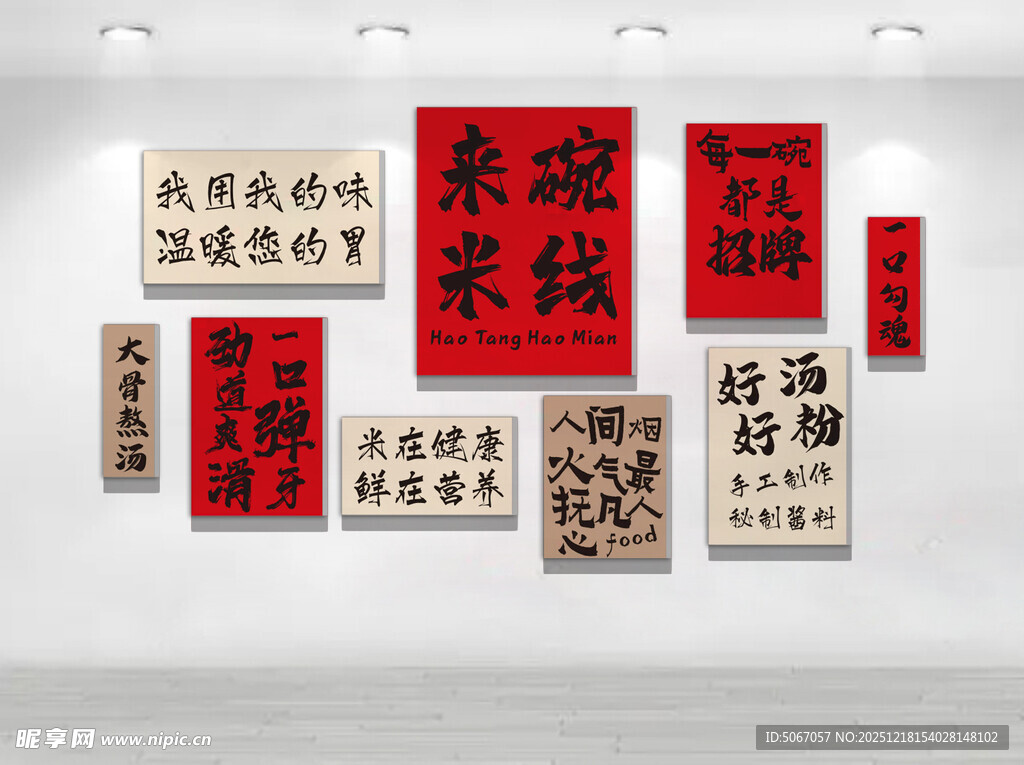 我用我的味
温暖您的胃
来碗
米线
Hao Tang Hao Mian
每一碗
都是
招牌
一口勾魂
大骨熬汤
一口弹牙
劲道爽滑
米在健康
鲜在营养
人间烟
火气最
抚凡人
心food
好汤
好粉
手工制作
秘制酱料
昵享网 www.nipic.cn
ID:5067057 NO:20251218154028148102